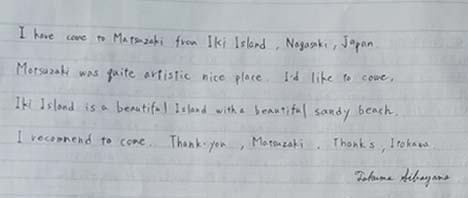 I have come to Matsuzaki from Iki Island, Nagasaki, Japan.
Matsuzaki was quite artistic nice place. I'd like to come,
Iki Island is a beautiful Island with a beautiful sandy beach.
I recommend to come. Thank-you, Matsuzaki. Thanks, Irokawa.